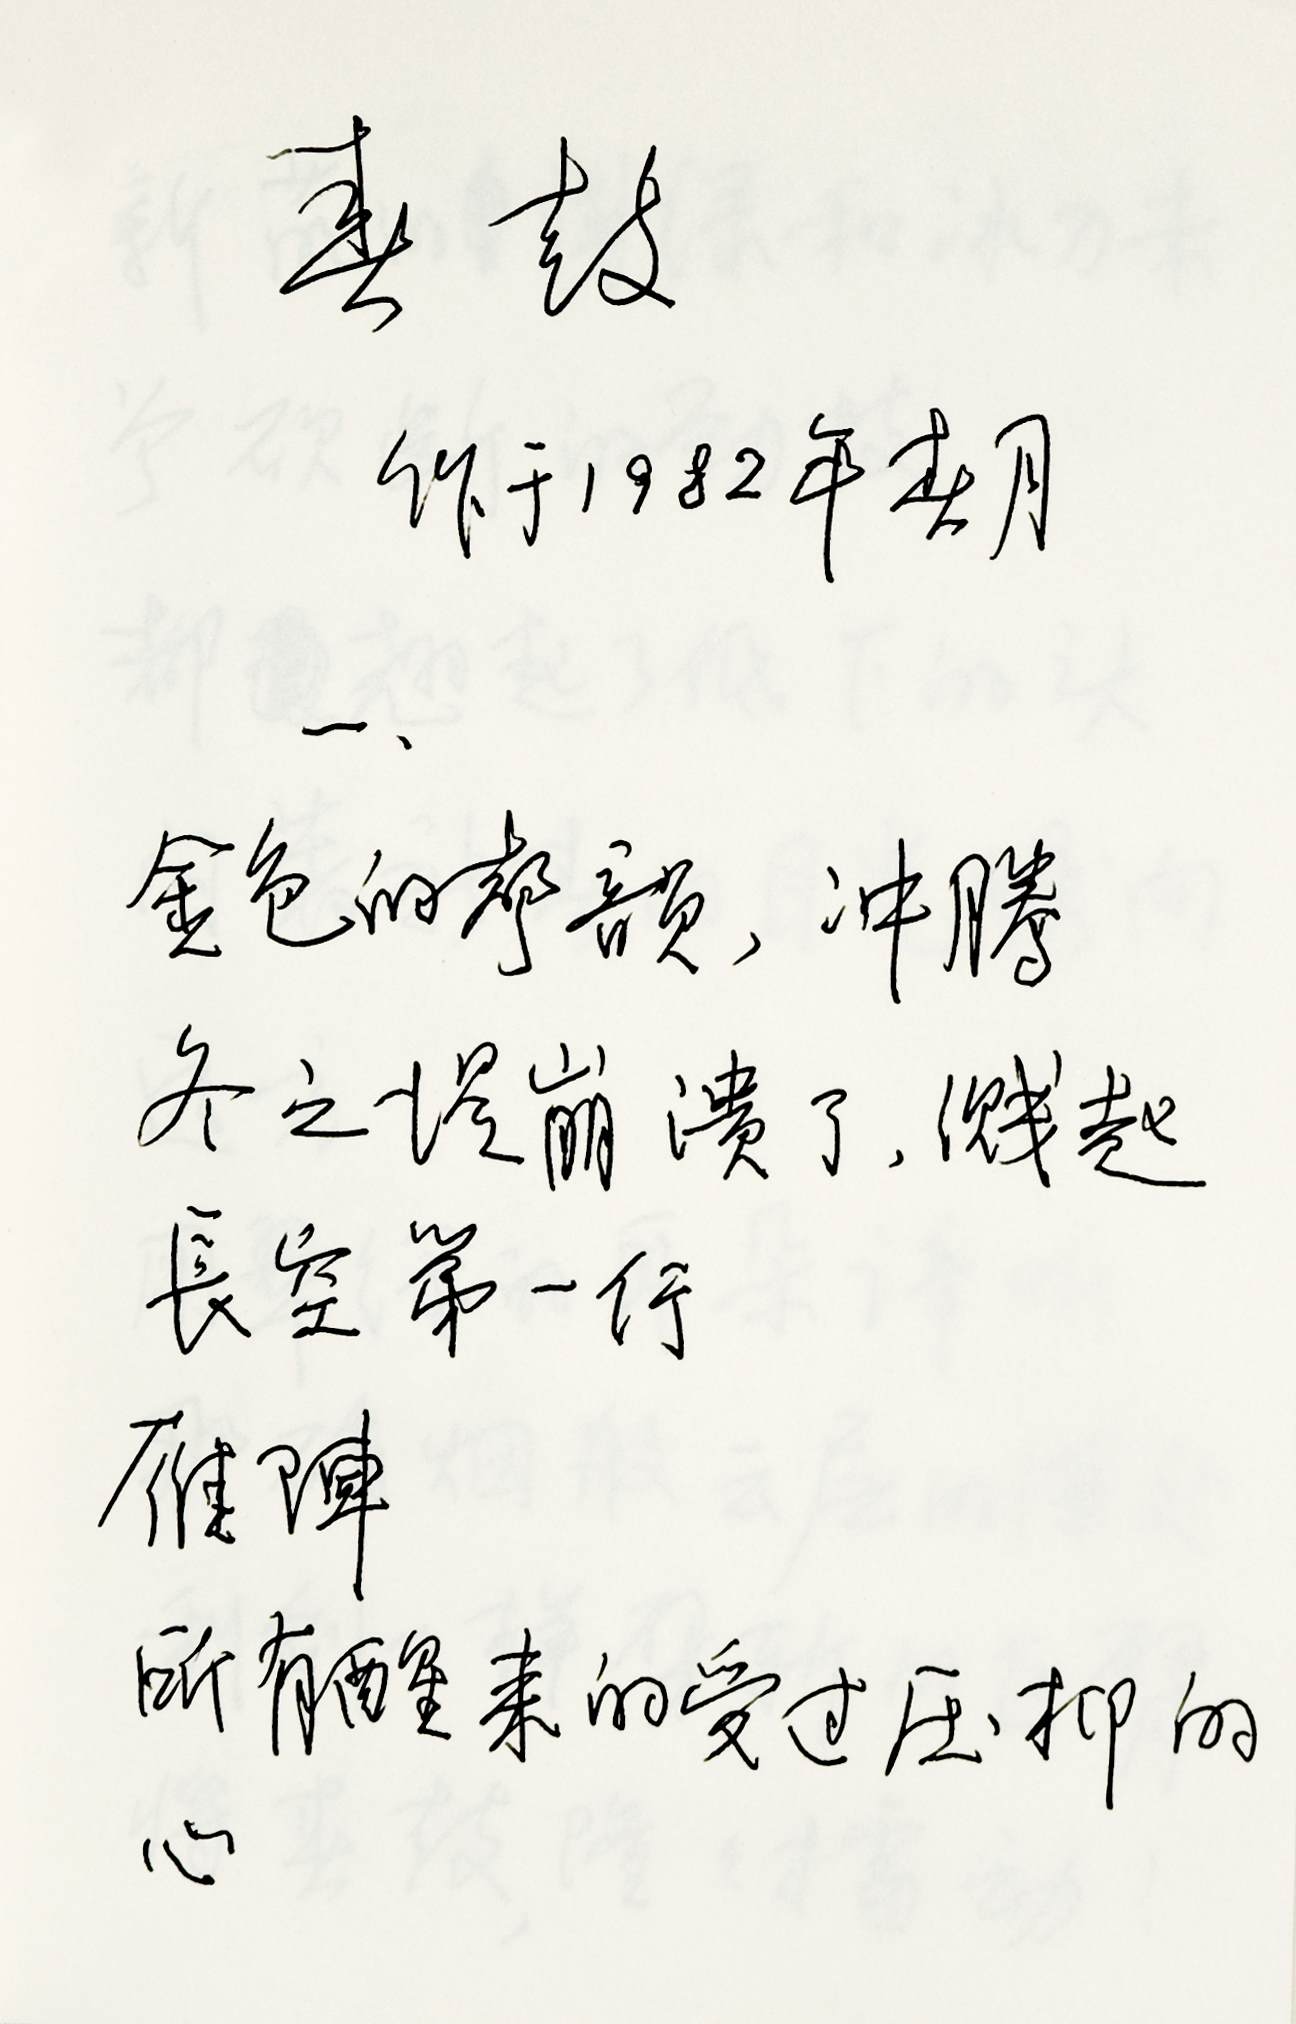 春鼓
作于1982年春月
一、
金色的声韻，冲腾
冬之堤崩溃了，溅起
長空第一行
雁陣
所有醒来的受过压抑的
心